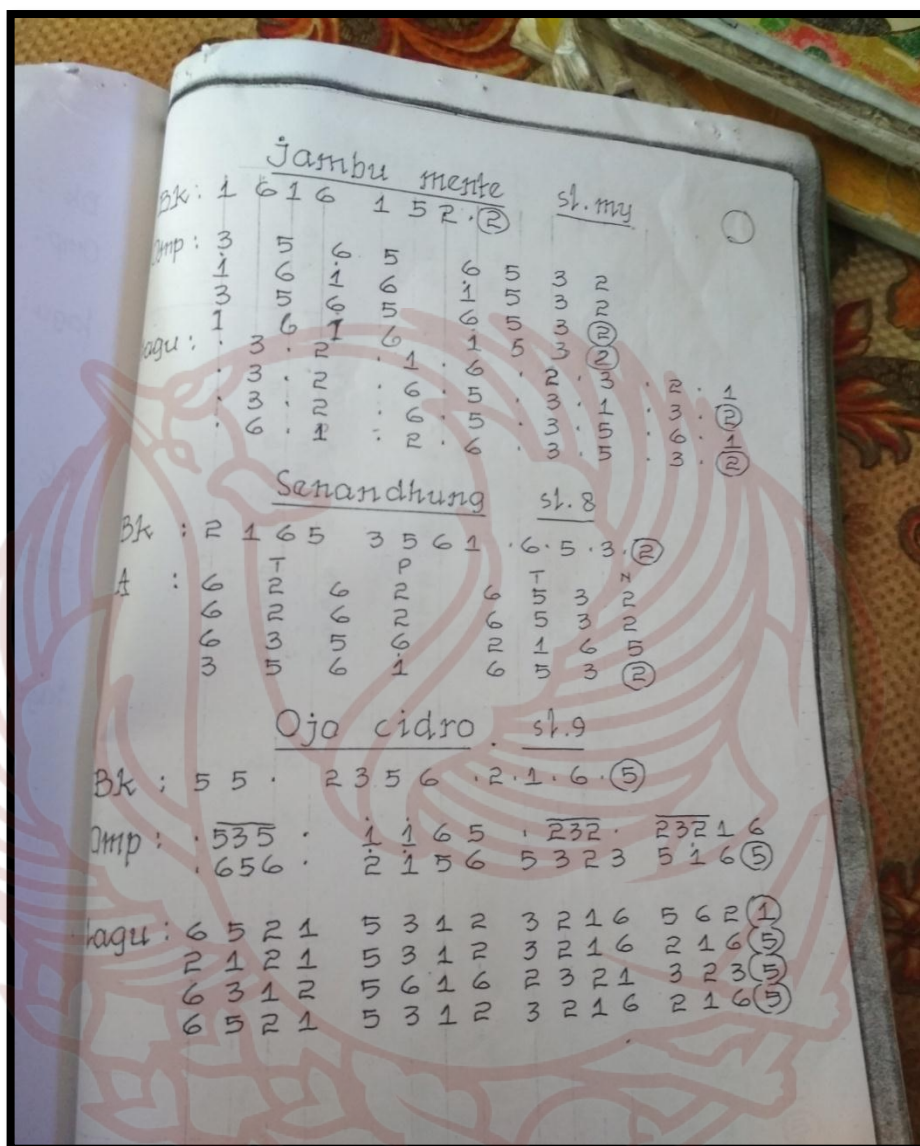 jambu mente sl. my
Bk : 1 6 1 6 1 5 2 . ②
Omp : 3 5 6 5 6 5 3 2
i 6 i 6 i 5 3 2
3 5 6 5 6 5 3 ②
1 6 1 6 1 5 3 ②
Lagu : . 3 . 2 . 1 . 6 . 2 . 3 . 2 . 1
. 3 . 2 . 6 . 5 . 3 . 1 . 3 . ②
. 3 . 2 . 6 . 5 . 3 . 5 . 6 . 1
. 6 . 1 . 2 . 6 . 3 . 5 . 3 . ②
Senandhung sl. 8
Bk : 2 1 6 5 3 5 6 1 . 6 . 5 . 3 . ②
T P T N
A : 6 2 6 2 6 5 3 2
6 2 6 2 6 5 3 2
6 3 5 6 2 1 6 5
3 5 6 1 6 5 3 ②
Ojo cidro . sl. 9
Bk : 5 5 . 2 3 5 6 . 2 . 1 . 6 . ⑤
Omp : . 5 3 5 . i i 6 5 . 2 3 2 . 2 3 2 1 6
. 6 5 6 . 2̇ i 5 6 5 3 2 3 5 i 6 ⑤
Lagu : 6 5 2 1 5 3 1 2 3 2 1 6 5 6 2 ①
2 1 2 1 5 3 1 2 3 2 1 6 2 1 6 ⑤
6 3 1 2 5 6 1 6 2 3 2 1 3 2 3 ⑤
6 5 2 1 5 3 1 2 3 2 1 6 2 1 6 ⑤